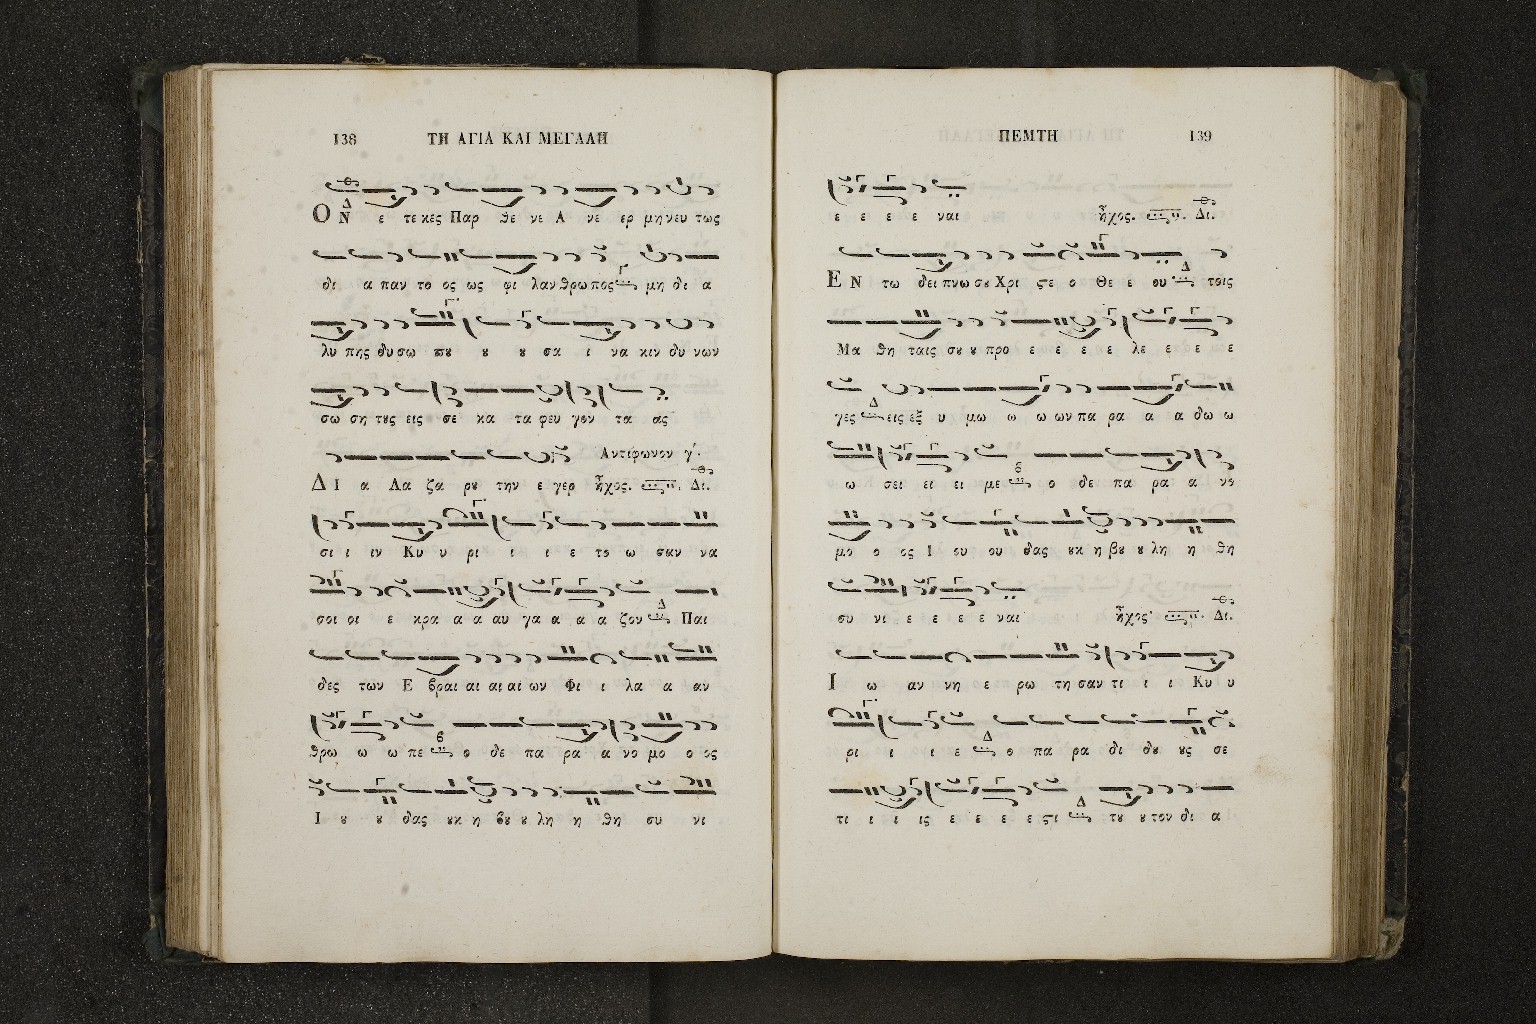 138 ΤΗ ΑΓΙΑ ΚΑΙ ΜΕΓΑΛΗ
ΟΝ ε τε κες Παρ θε νε Α νε ερ μη νευ τως
δι α παν το ος ως φι λαν θρω πος μη δι α
λυ πης δυ σω πȣ ȣ ȣ σα ι να κιν δυ νων
σω ση τȣς εις σε κα τα φευ γον τα ας
Αντιφωνον γ΄.
ΔΙ α Λα ζα ρȣ την ε γερ ἦχος. Δι.
σι ι ιν Κυ υ ρι ι ι ε το ω σαν να
σοι οι ε κρα α α αυ γα α α α ζον Δ Παι
δες των Ε βραι αι αι αι ων Φι ι λα α αν
θρω ω ω πε ο δε πα ρα α νο μο ο ος
Ι ȣ ȣ δας ȣκ η βȣ ȣ λη η θη συ νι
ΠΕΜΤΗ 139
ε ε ε ε ναι ἦχος. Δι.
ΕΝ τω δει πνω σȣ Χρι ςε ο Θε ε ου Δ τοις
Μα θη ταις σȣ ȣ προ ε ε ε ε λε ε ε ε
γες Δ εις εξ υ μω ω ω ων πα ρα α α δω ω
ω σει ει ει με ο δε πα ρα α νο
μο ο ος Ι ου ου δας ȣκ η βȣ ȣ λη η θη
συ νι ε ε ε ε ναι ἦχος Δι.
Ι ω αν νη ε ρω τη σαν τι ι ι Κυ υ
ρι ι ι ε Δ ο πα ρα δι δȣ ȣς σε
τι ι ι ις ε ε ε ε ςι Δ τȣ ȣ τον δι α